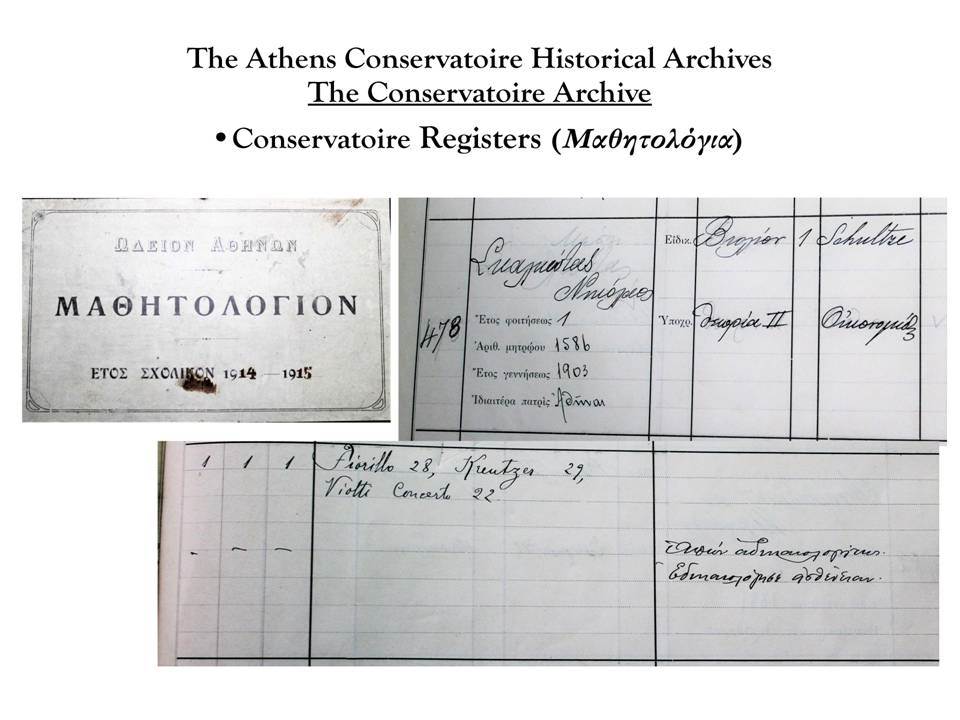 The Athens Conservatoire Historical Archives
The Conservatoire Archive
•Conservatoire Registers (Μαθητολόγια)
ΩΔΕΙΟΝ ΑΘΗΝΩΝ
ΜΑΘΗΤΟΛΟΓΙΟΝ
ΕΤΟΣ ΣΧΟΛΙΚΟΝ 1914 — 1915
478
Σκαλκώτας
Νικόλαος
Ἔτος φοιτήσεως 1
Ἀριθ. μητρῴου 1586
Ἔτος γεννήσεως 1903
Ἰδιαιτέρα πατρὶς Ἀθῆναι
Εἰδικ. Βιολίον 1 Schultze
Ὑποχρ. Θεωρία II
1 1 1 Fiorillo 28, Kreutzer 29,
Viotti Concerto 22
- - - Ἀπὼν ἀδικαιολογήτως.
Ἐδικαιολόγησε ἀσθένειαν.